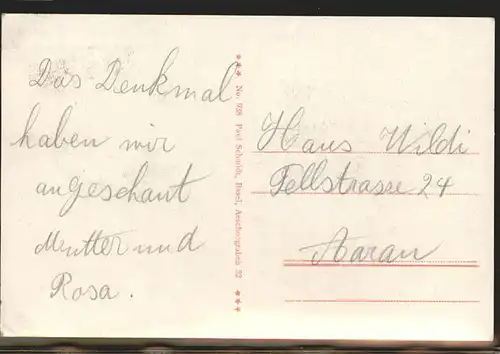 Das Denkmal
haben wir
angeschaut
Mutter und
Rosa.
*** No. 938 Paul Schmidt, Basel, Aeschengraben 32 ***
Hans Wildi
Tellstrasse 24
Aarau